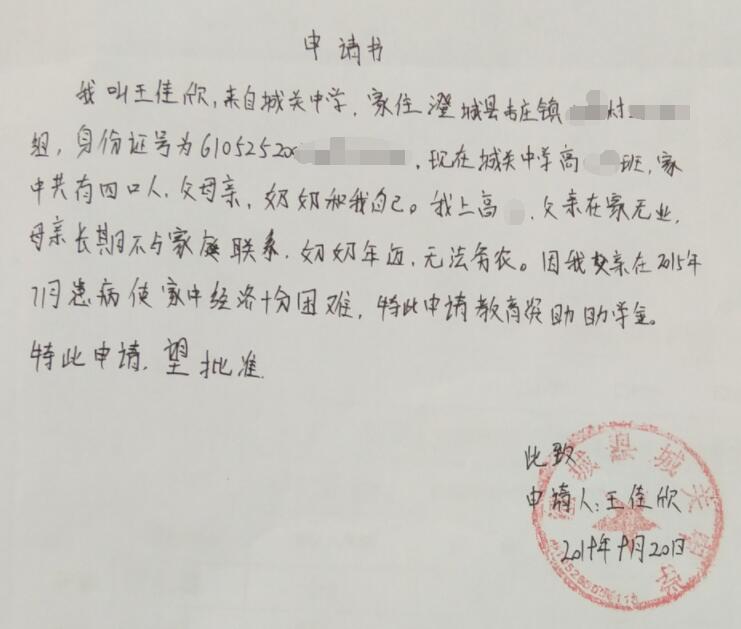 申请书
我叫王佳欣,来自城关中学,家住澄城县韦庄镇 村
组,身份证号为610525200 ,现在城关中学高 班,家
中共有四口人,父母亲,奶奶和我自己。我上高 ,父亲在家无业,
母亲长期不与家庭联系,奶奶年迈,无法务农。因我父亲在2015年
11月患病使家中经济十分困难,特此申请教育资助助学金。
特此申请,望批准.
此致
申请人:王佳欣
2019年9月20日
城县城关中学